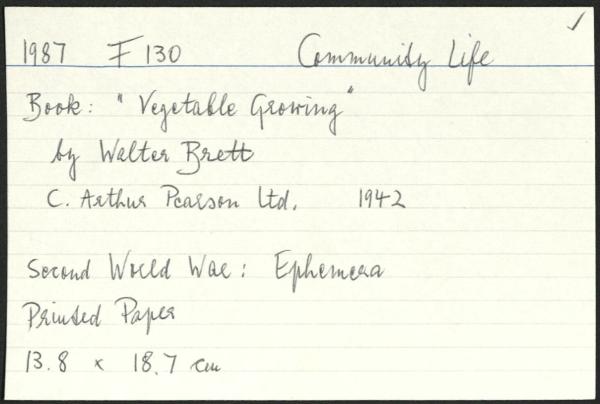 1987 F 130 Community Life
Book: "Vegetable Growing"
by Walter Brett
C. Arthur Pearson Ltd. 1942
Second World War: Ephemera
Printed Paper
13.8 x 18.7 cm